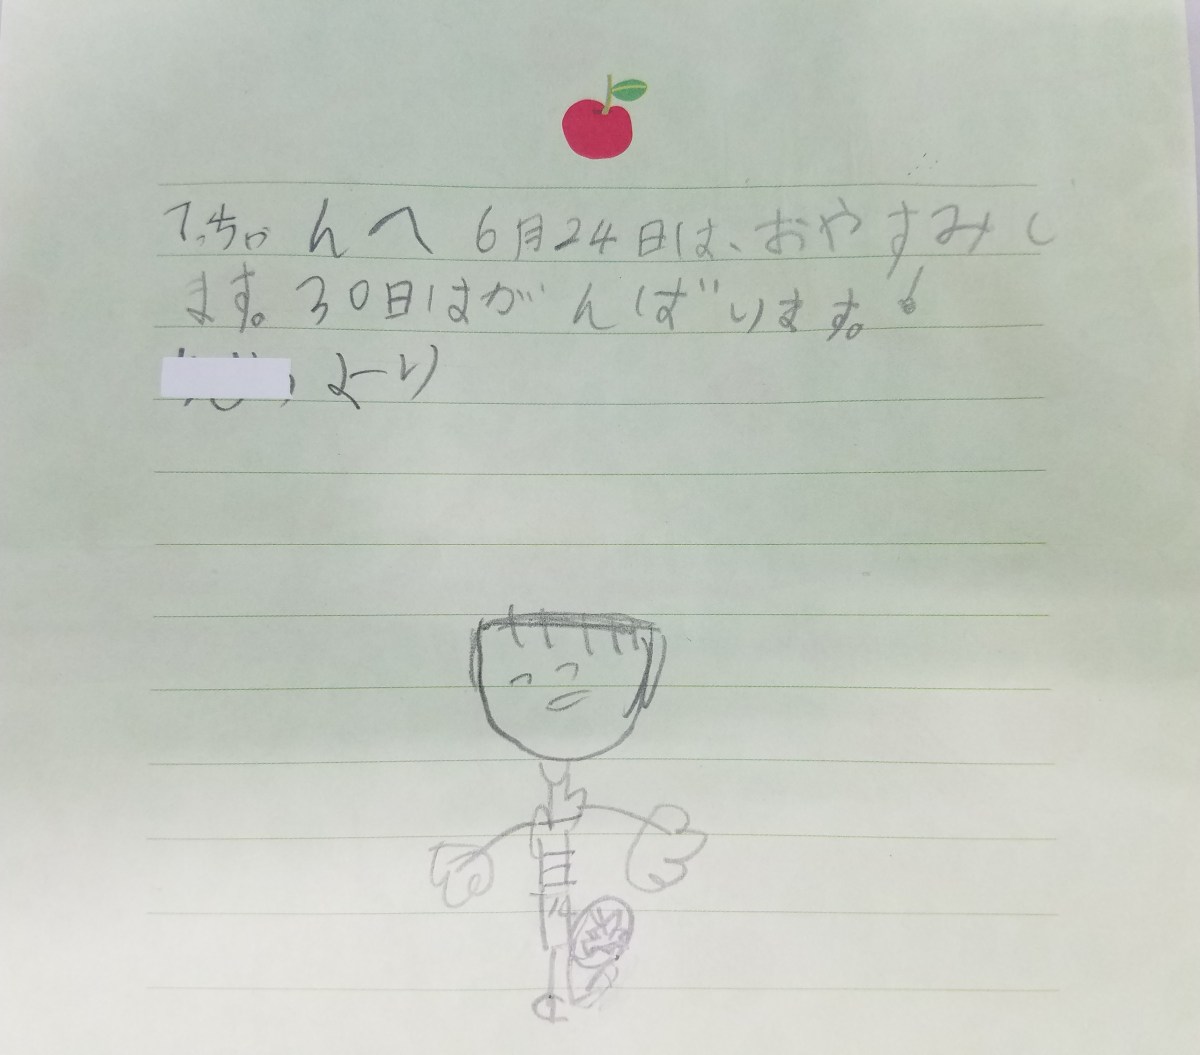 てっちゃんへ 6月24日は、おやすみし
ます。30日はがんばります。!
より